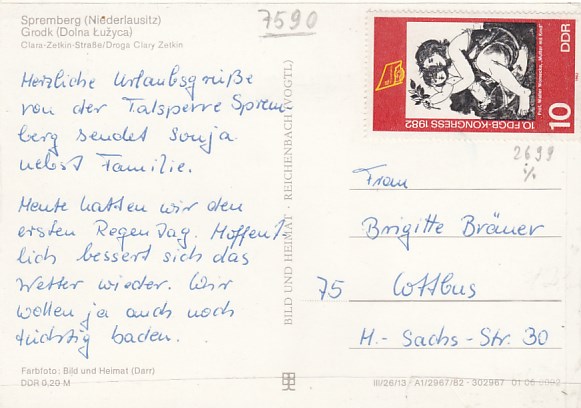 Spremberg (Niederlausitz)
Grodk (Dolna Łužyca)
Clara-Zetkin-Straße/Droga Clary Zetkin
7590
Herzliche Urlaubsgrüße
von der Talsperre Sprem
berg sendet Sonja
nebst Familie.
Heute hatten wir den
ersten Regentag. Hoffent
lich bessert sich das
Wetter wieder. Wir
wollen ja auch noch
tüchtig baden.
Farbfoto: Bild und Heimat (Darr)
DDR 0,20 M
BILD UND HEIMAT · REICHENBACH (VOGTL)
10 DDR
10. FDGB-KONGRESS 1982
Prof. Walter Womacka, „Mutter mit Kind"
2699
Frau
Brigitte Bräuer
75 Cottbus
H.-Sachs-Str. 30
III/26/13 A1/2967/82 - 302967 01 06